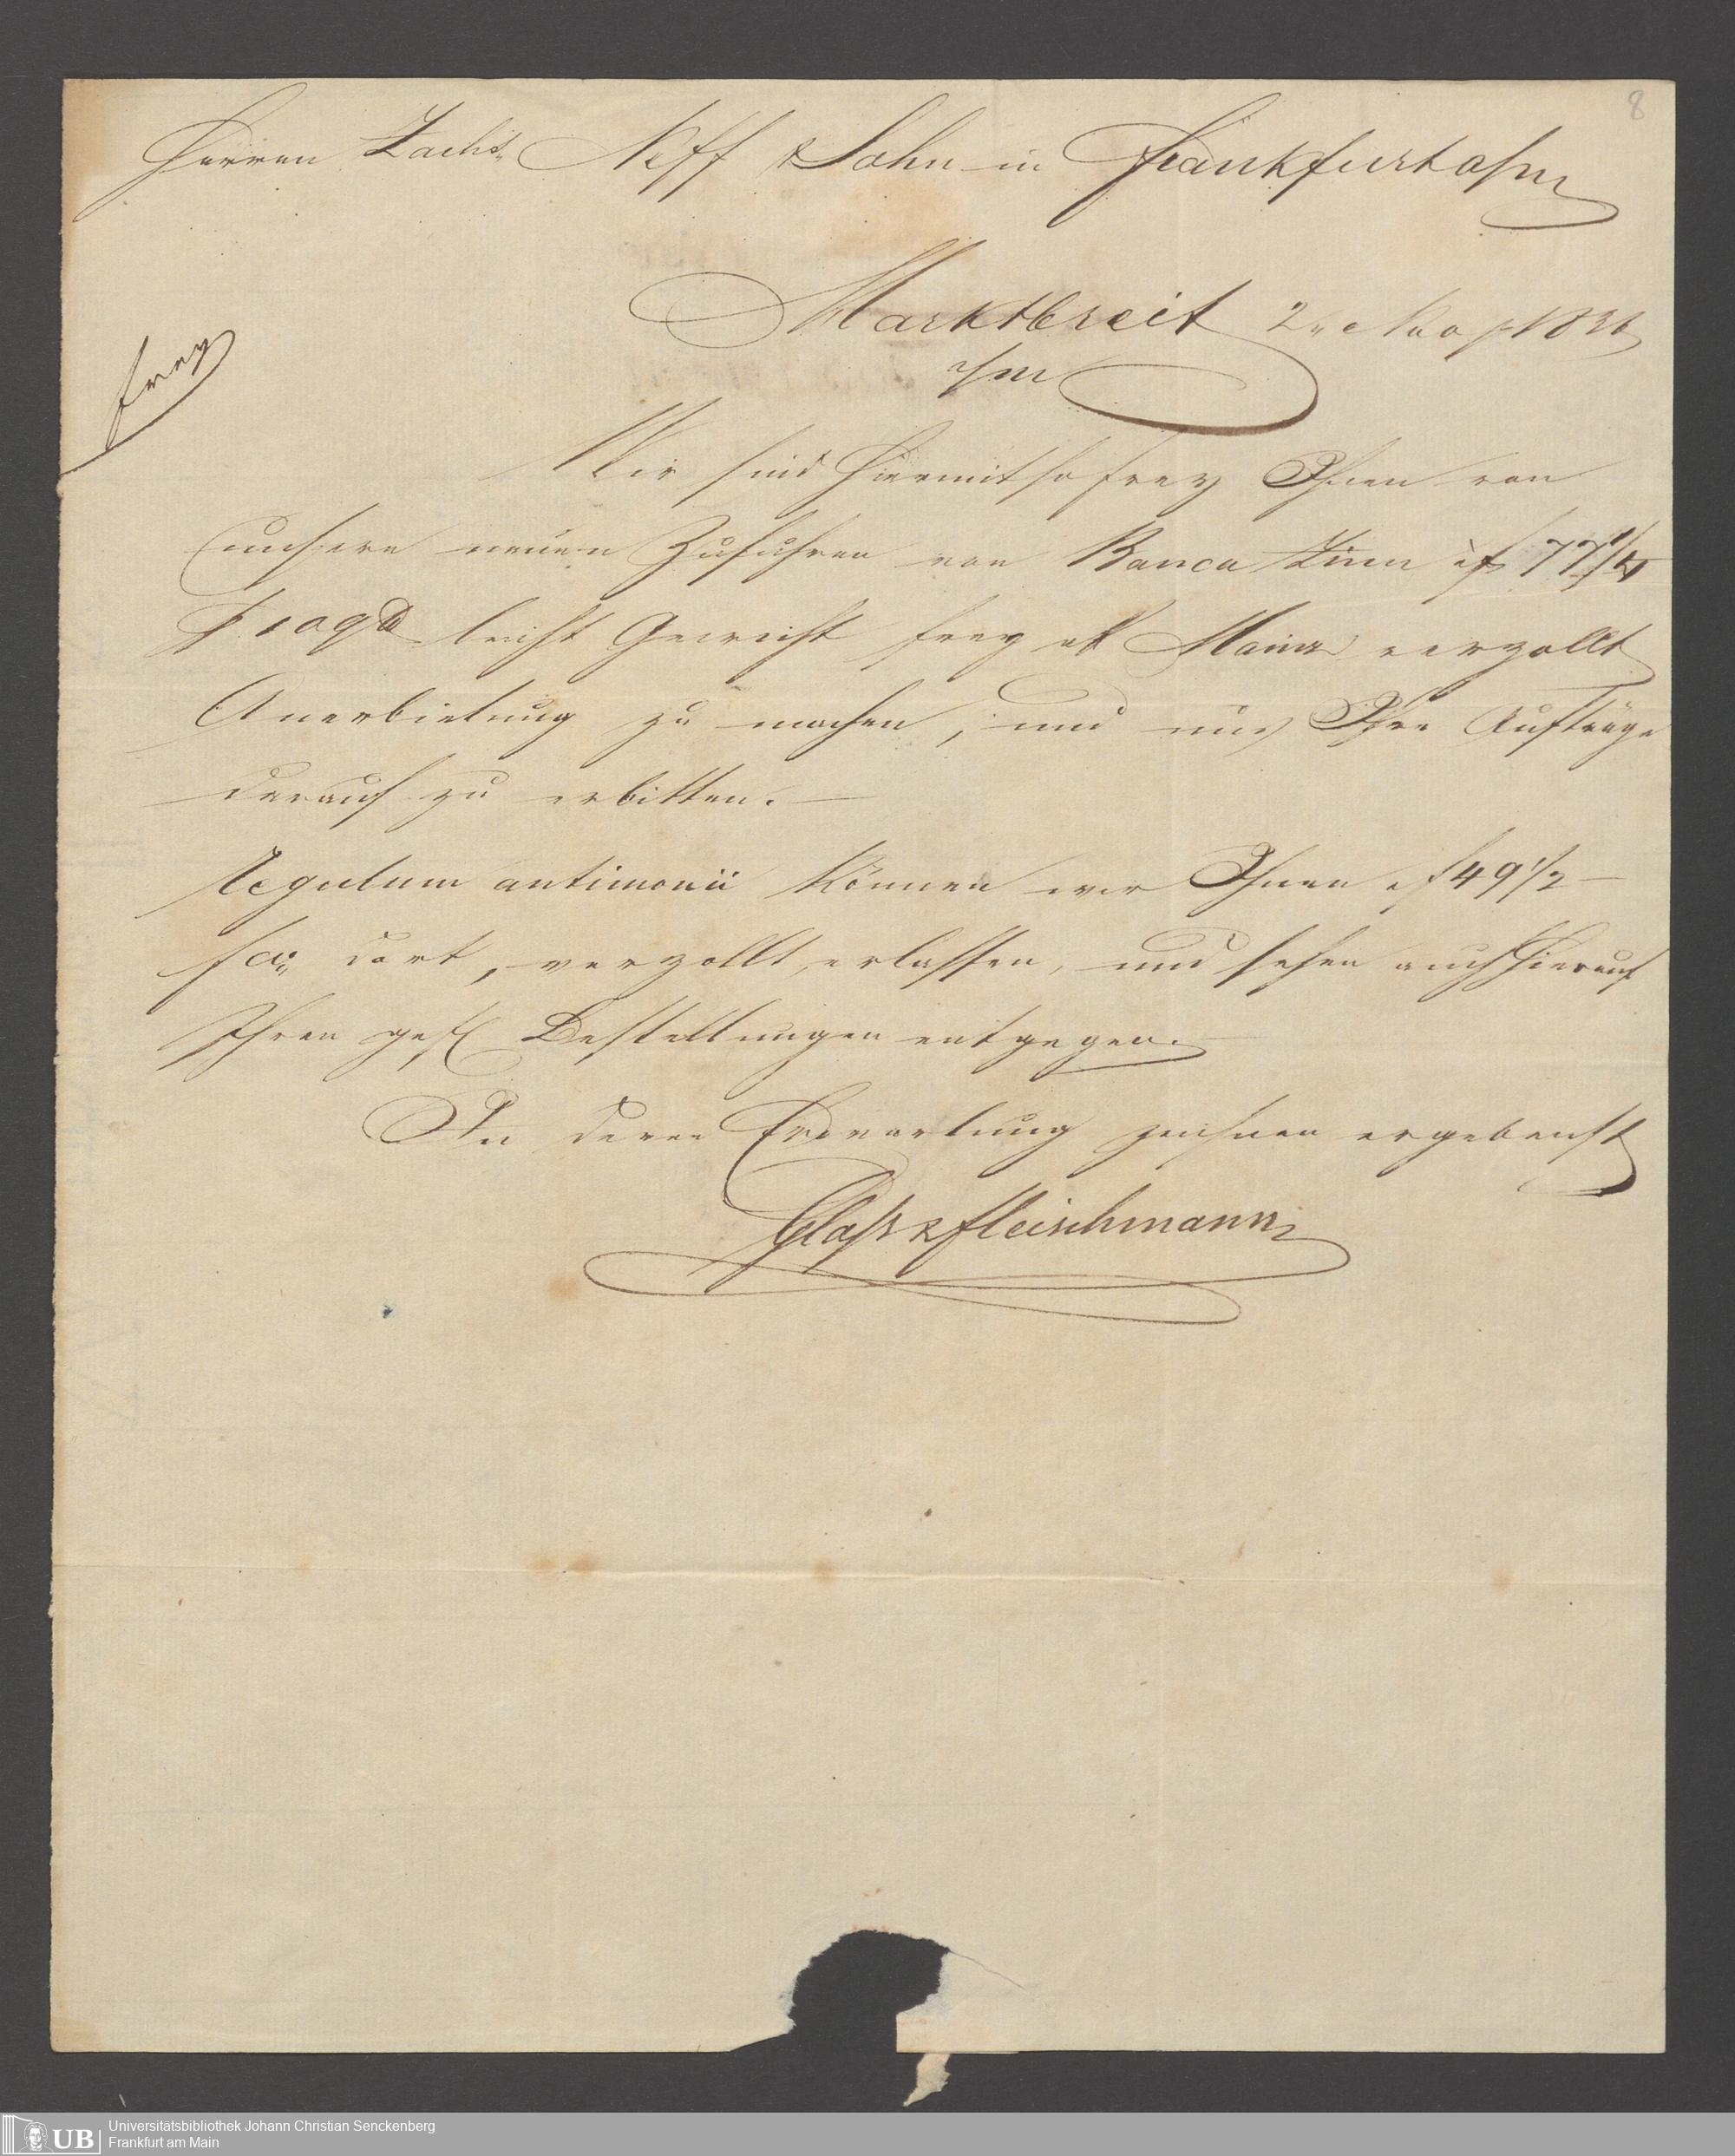 8
Herren Zachs. Neff & Sohn in Frankfurt a/m
Marktbreit 2. 1836
a/m
frey
Wir sind hiermit so frey Ihnen von
unsern neuen Zufuhren von Banca Zinn à f 77 1/4
p 100 leicht Gewicht frey ab Mainz verzollt
Anerbietung zu machen, und uns Ihre Aufträge
darauf zu erbitten. —
Regulum antimonii können wir Ihnen à f 49 1/2 —
dort, verzollt, erlassen, und sehen auch hierauf
Ihren gefl Bestellungen entgegen. —
In deren Erwartung zeichnen ergebenst
Glaß & Fleischmann
UB
Universitätsbibliothek Johann Christian Senckenberg
Frankfurt am Main